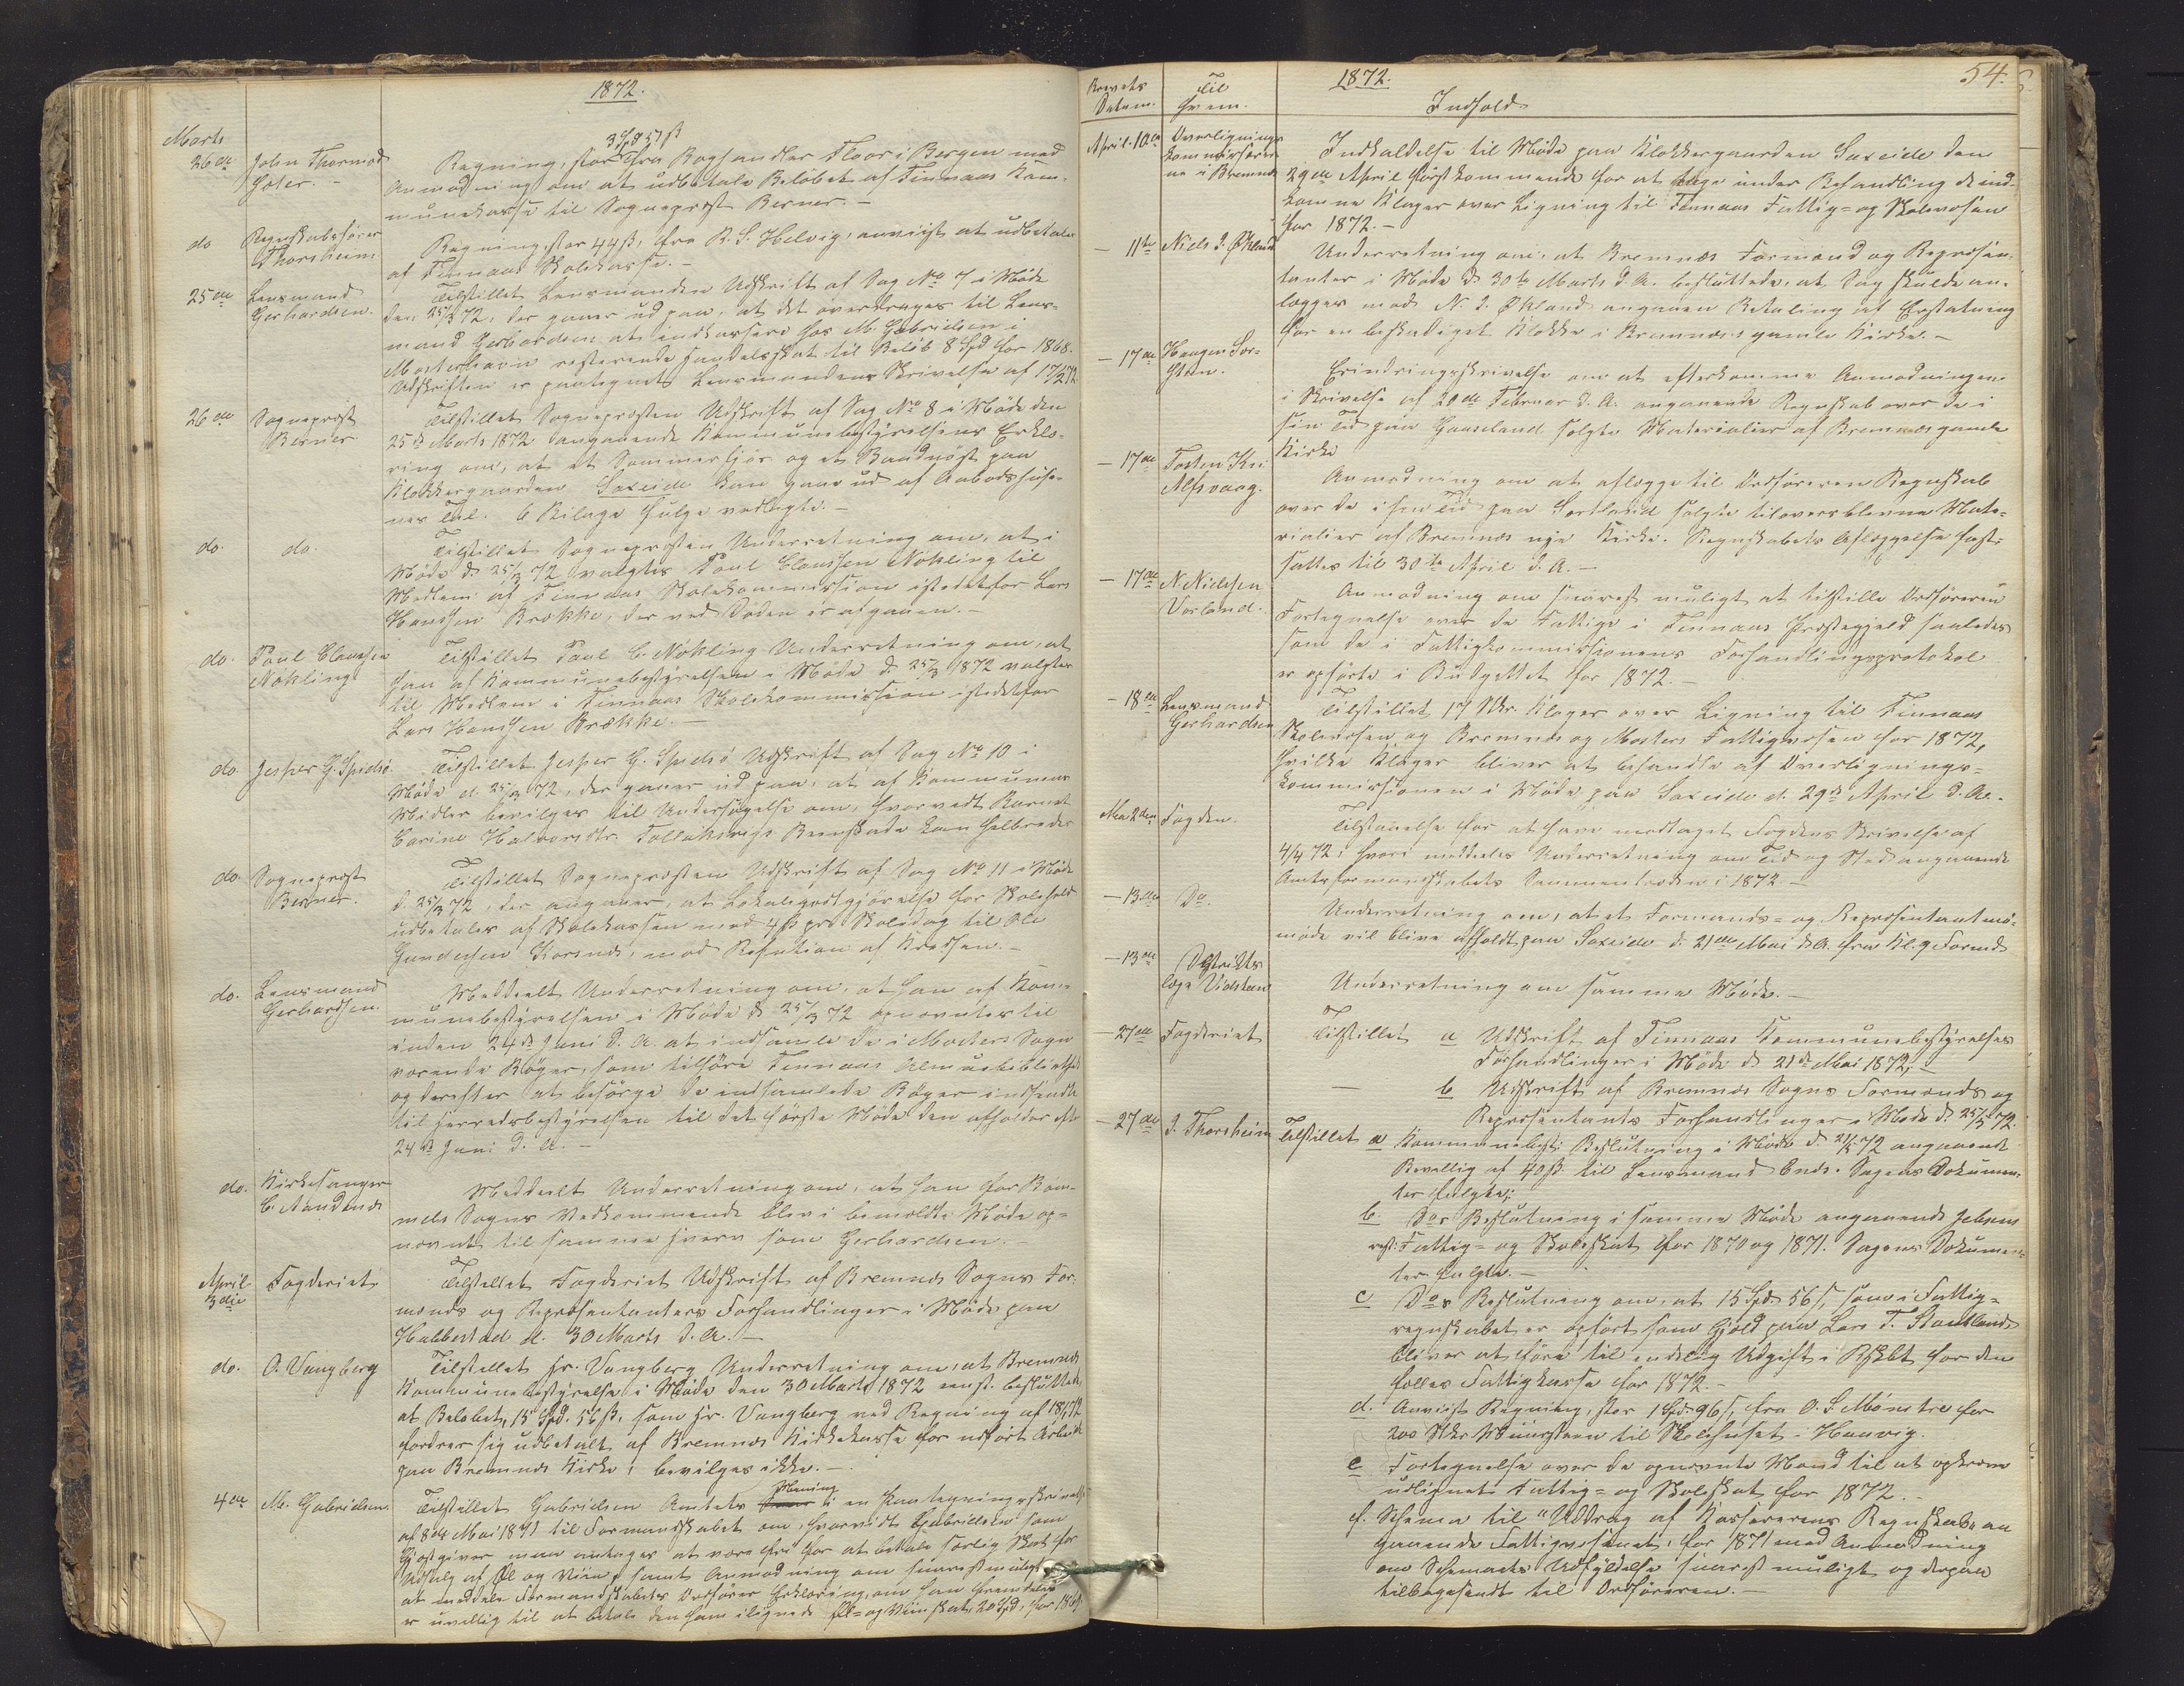 1872.
Marts
26de John Thormod-
sæter. -
3 Spd 51 ß
Regning, stor fra Boghandler Floor i Bergen med
Anmodning om at udbetale Beløbet af Finnaas Kom-
munekasse til Sogneprest Berner. -
do Regnskabsfører
Thorsheim
Regning, stor 44 ß, fra R. S. Helvig, anviist at udbetales
af Finnaas Skolekasse. -
25de Lensmand
Gerhardsen.
Tilstillet Lensmanden Udskrift af Sag No 7 i Møde
den 25/3 72, der gaaer ud paa, at det overdrages til Lens-
mand Gerhardsen at indkassere hos M. Gabrielsen i
Mosterhavn resterende Handelsskat til Beløb 8 Spd for 1868.
Udskriften er paategnet Lensmandens Skrivelse af 17/2 72.
26de Sogneprest
Berner
Tilstillet Sognepresten Udskrift af Sag No 8 i Møde den
25de Marts 1872 angaaende Kommunebestyrelsens Erklæ-
ring om, at et Sommerfjøs og et Baadnøst paa
Klokkergaarden Sæxeide kan gaae ud af Aabodshuse-
nes Tal. 6 Bilage fulge vedlagte. -
do. do.
Tilstillet Sognepresten Underretning om, at i
Møde d. 25/3 72 valgtes Poul Clausen Nøkling til
Medlem af Finnaas Skolekommission istedetfor Lars
Hansen Brække, der ved Døden er afgaaen. -
do. Poul Clausen
Nøkling
Tilstillet Poul C. Nøkling Underretning om, at
han af Kommunebestyrelsen i Møde d. 25/3 1872 valgtes
til Medlem i Finnaas Skolekommission istedetfor
Lars Hansen Brække. -
do. Jesper G. Spidsø.
Tilstillet Jesper G. Spidsø Udskrift af Sag No 10 i
Møde d. 25/3 72, der gaaer ud paa, at af Kommunens
Midler bevilges til Undersøgelse om, hvorvidt Barnet
Carine Halvorsdtr. Beenskade kan helbredes
do. Sogneprest
Berner.
Tilstillet Sognepresten Udskrift af Sag No 11 i Møde
d. 25/3 72, der angaaer, at Lokalegodtgjørelse for Skolehold
udbetales af Skolekassen med 4 ß pro Skoledag til Ole
Gundersen Korsnes, mod Refusion af Kredsen. -
do. Lensmand
Gerhardsen.
Meddeelt Underretning om, at han af Kom-
munebestyrelsen i Møde d. 25/3 72 opnævntes til
inden 24de Juni d. A. at indsamle de i Mosters Sogn
værende Bøger, som tilhøre Finnaas Almuebibliothek
og derefter at besørge de indsamlede Bøger indsendte
til Herredsbestyrelsen til det første Møde den afholder efter
24de Juni d. A. -
do. Kirkesanger
C. Aandenes
Meddeelt Underretning om, at han for Bøm-
mels Sogns Vedkommende blev i bemeldte Møde op-
nævnt til samme Hverv som Gerhardsen. -
April
3die Fogderiet
Tilstillet Fogderiet Udskrift af Bremnes Sogns For-
mænds og Repræsentanters Forhandlinger i Møde paa
Hallerstad d. 30 Marts d. A. -
do. O. Vangberg
Tilstillet Hr. Vangberg Underretning om, at Bremnes
Kommunebestyrelse i Møde den 30 Marts 1872 eenst. besluttede,
at Beløbet, 15 Spd. 56 ß, som Hr. Vangberg ved Regning af 18/1 72
fordrer sig udbetalt af Bremnes Kirkekasse for udført Arbeide
paa Bremnes Kirke, bevilges ikke. -
4de M. Gabrielsen.
Mening
Tilstillet Gabrielsen Amtets i en Paategningsskrivelse
af 8de Mai 1871 til Formandskabet om, hvorvidt Gabrielsen som
Gjæstgiver maa antages at være fri for at betale særlig Skat for
Udsalg af Øl og Viin, samt Anmodning om snarest muligt
at meddele Formandskabets Ordfører Erklæring, om han fremdeles
er uvillig til at betale den ham ilignede Øl- og Viinskat, 20 Spd, for 1869.
54.
Brevets
Datum.
Til
hvem.
1872.
Indhold.
April 10de Overlignings
kommissærer-
ne i Bremnes
Indkaldelse til Møde paa Klokkergaarden Sæxeide den
29de April førstkommende for at tage under Behandling de ind-
komne Klager over Ligning til Finnaas Fattig- og Skolevæsen
for 1872. -
- 11te Niels J. Økland
Underretning om, at Bremnes Formænd og Repræsen-
tanter i Møde d. 30te Marts d. A. besluttede, at Sag skulde an-
lægges mod N. J. Økland angaaende Betaling af Erstatning
for en beskadiget Klokke i Bremnes's gamle Kirke. -
- 17de Haagen Sor-
Erindringsskrivelse om at efterkomme Anmodningen
i Skrivelse af 20de Februar d. A. angaaende Regnskab over de i
sin Tid paa Gaaseland solgte Materialier af Bremnes gamle
Kirke
- 17de Tosten Kn.
Alfsvaag.
Anmodning om at aflægge til Ordføreren Regnskab
over de i sin Tid paa Sortland solgte tiloversblevne Mate-
rialier af Bremnes nye Kirke. Regnskabets Aflæggelse fast-
sattes til 30te April d. A. -
- 17de N. Nielssen
Vorland.
Anmodning om snarest muligt at tilstille Ordføreren
Fortegnelse over de Fattige i Finnaas Præstegjeld saaledes
som de i Fattigkommissionens Forhandlingsprotokol
er opførte i Budgettet for 1872. -
- 18de Lensmand
Gerhardsen
Tilstillet 17 Stkr. Klager over Ligning til Finnaas
Skolevæsen og Bremnes og Mosters Fattigvæsen for 1872,
hvilke Klager bliver at behandle af Overlignings-
kommissionen i Møde paa Sæxeide d. 29de April d. A.
Mai 2den Fogden.
Tilstaaelse for at have modtaget Fogdens Skrivelse af
4/4 72, hvori meddeles Underretning om Tid og Sted angaaende
Amtsformandskabets Sammentræden i 1872. -
- 13de Do.
Underretning om, at et Formands- og Repræsentantmø-
møde vil blive afholdt paa Sæxeide d. 21de Mai d. A. fra Kl. 9 Formd
- 13de Distrikts
læge Vidsteen
Underretning om samme Møde. -
- 27de Fogderiet
Tilstillet a Udskrift af Finnaas Kommunebestyrelses
Forhandlinger i Møde d. 21de Mai 1872, -
- b Udskrift af Bremnes Sogns Formænds og
Repræsentants Forhandlinger i Møde d. 25/5 72.
- 27de J. Thorsheim
Tilstillet a Kommunebest. Beslutning i Møde d. 21/5 72 angaaende
Bevillig af 40 ß til Lensmand Enes. Sagens Dokumen-
ter fulgte;
b. Dos Beslutning i samme Møde angaaende Jebsens
rest. Fattig- og Skoleskat for 1870 og 1871. Sagens Dokumen-
ter fulgte. -
c Dos Beslutning om, at 15 Spd. 56 ß, som i Fattig-
regnskabet er opført som Gjæld paa Lars T. Stautland,
bliver at føre til endelig Udgift i Rgskbt for den
fælles Fattigkasse for 1872. -
d. Anviist Regning, stor 1 Spd. 96 ß, fra O. S. Mønstre for
200 Stkr Muursteen til Skolehuset i Haavig.
e Fortegnelse over de opnævnte Mænd til at opkræve
udlignet Fattig- og Skoleskat for 1872. -
f. Schema til "Uddrag af Kassererens Regnskab an
gaaende Fattigvæsenet" for 1871 med Anmodning
om Schemaets Udfyldelse snarest muligt og derpaa
tilbagesendt til Ordføreren. -